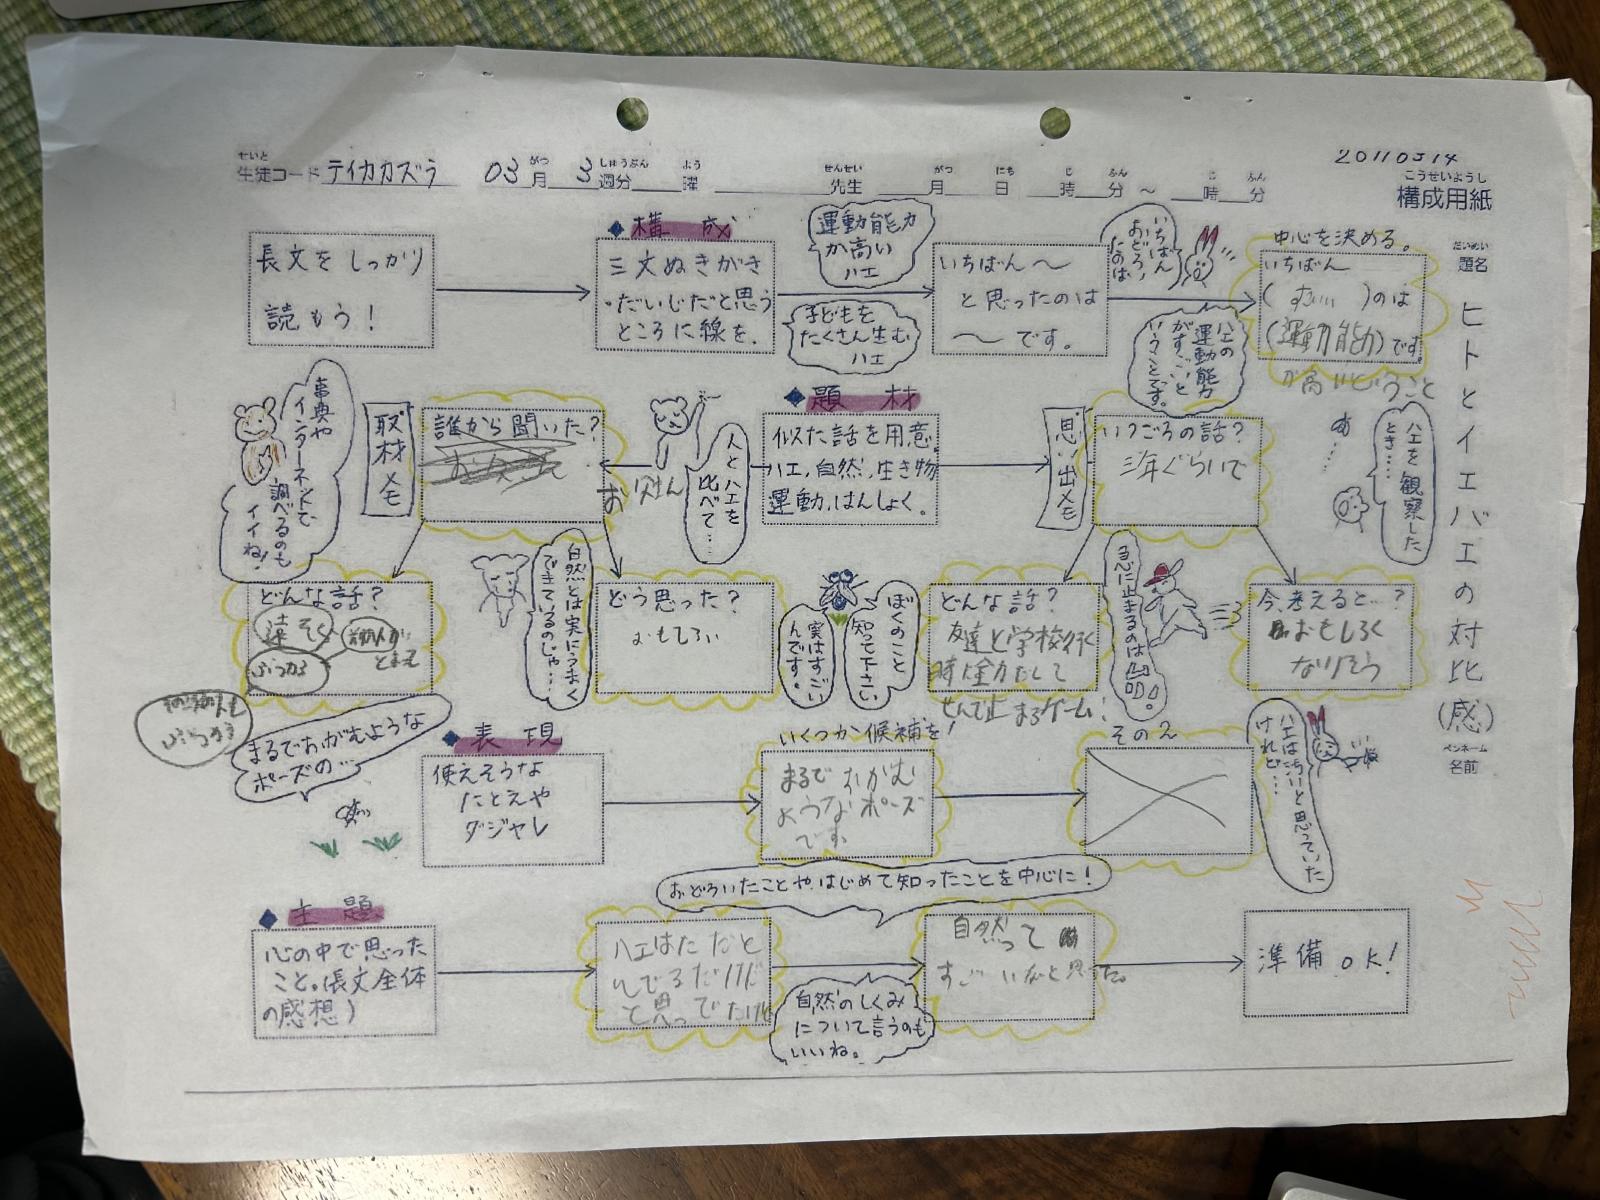 20110314
こうせいようし
構成用紙
せいと
生徒コード テイカカズラ 03 月 3 週分 曜 先生 月 日 時 分 ～ 時 分
がつ しゅうぶん よう せんせい がつ にち じ ふん じ ふん
だいめい
題名
ヒトとイエバエの対比(感)
ペンネーム
名前
長文をしっかり
読もう！
◆構成
三文ぬきがき
・だいじだと思う
ところに線を.
運動能力
が高い
ハエ
子どもを
たくさん生む
ハエ
いちばん～
と思ったのは
～です。
いちばん
おどろい
たのは
ハエの
運動能力
がすごいと
いうことです。
中心を決める。
いちばん
( すごい )のは
(運動能力)です。
が高いということ
事典や
インターネットで
調べるのも
イイね!
取材メモ
誰から聞いた？
お父さん
人とハエを
比べて……
◆題材
似た話を用意
ハエ,自然,生き物
運動,はんしょく。
思い出メモ
いつごろの話？
三年ぐらいで
ハエを観察した
とき……
あ……
どんな話？
ぶつかる
とまえ
自然とは実にうまく
できているのじゃ…
どう思った？
おもしろい
実はすごい
んです。
ぼくのこと
知って下さい
どんな話？
友達と学校行く
時に全力だして
急に止まるのは
今,考えると…？
おもしろく
なりそう
まるでおがむような
ポーズの…
◆表現
使えそうな
たとえや
ダジャレ
いくつか候補を！
まるでおがむ
ようなポーズ
です
その2
ハエは汚いと思っていた
けれど…
おどろいたことや,はじめて知ったことを中心に！
◆主題
心の中で思った
こと。(長文全体
の感想)
ハエはただと
んでるだけだ
と思ってたけど
自然のしくみ
について言うのも
いいね。
自然って
すごーいなと思った。
準備OK!